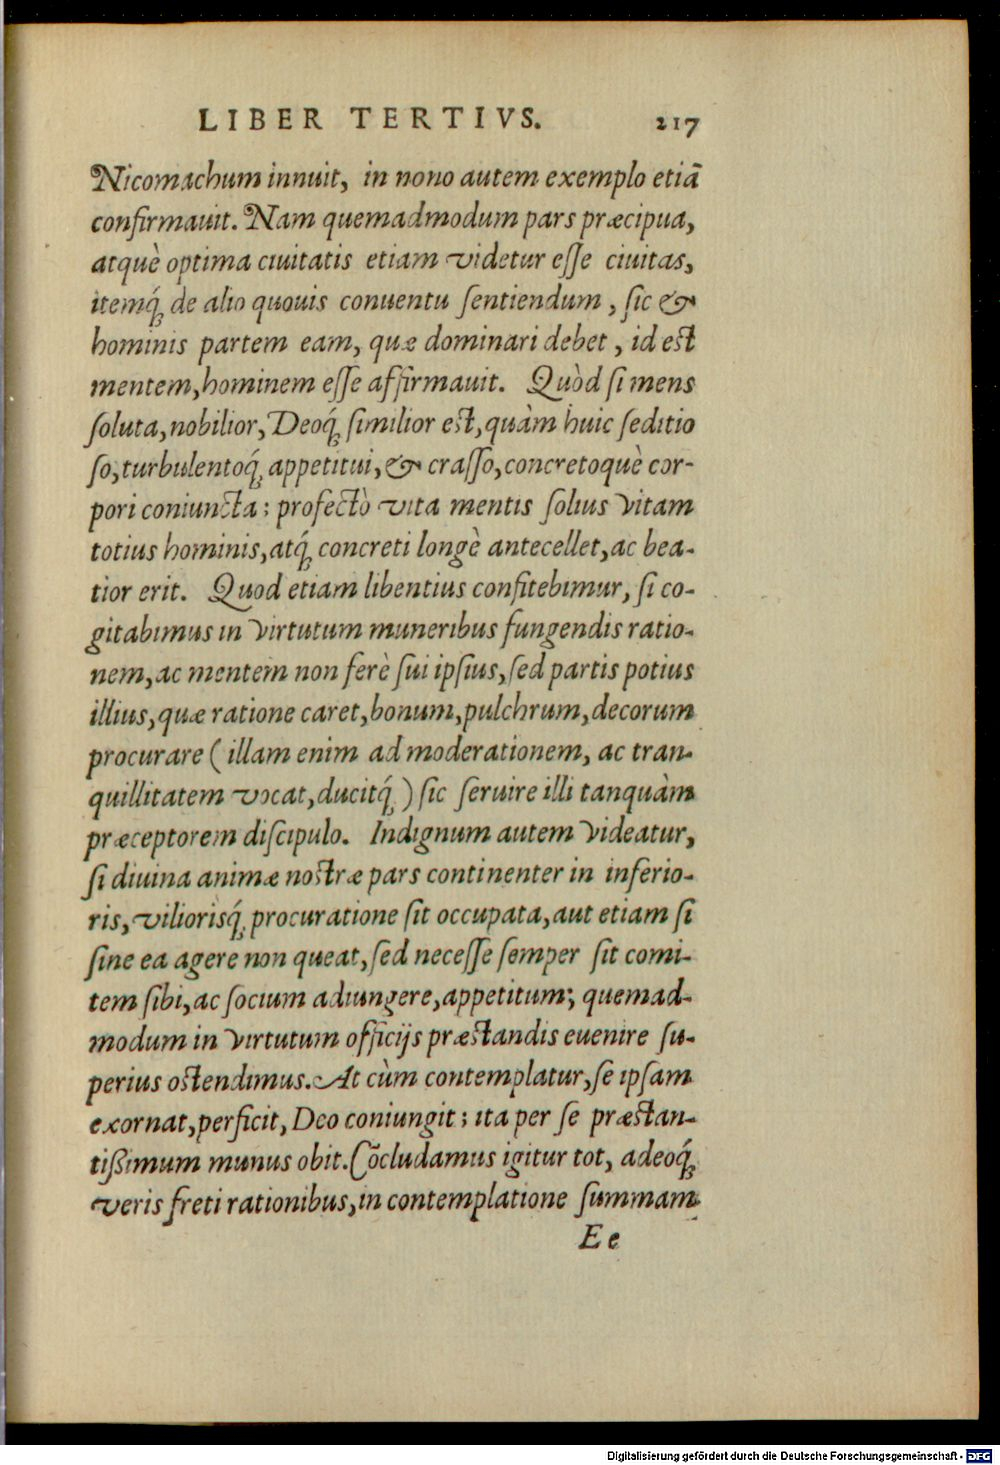 LIBER TERTIVS. 217
Nicomachum innuit, in nono autem exemplo etiā
confirmauit. Nam quemadmodum pars præcipua,
atquè optima ciuitatis etiam videtur eſſe ciuitas,
itemq́; de alio quouis conuentu ſentiendum, ſic &
hominis partem eam, quæ dominari debet, id est
mentem, hominem eſſe affirmauit. Quòd ſi mens
ſoluta, nobilior, Deoq́; ſimilior est, quàm huic ſeditio
ſo, turbulentoq́; appetitui, & craſſo, concretoquè cor-
pori coniuncta: profectò vita mentis ſolius vitam
totius hominis, atq́; concreti longè antecellet, ac bea-
tior erit. Quod etiam libentius confitebimur, ſi co-
gitabimus in virtutum muneribus fungendis ratio-
nem, ac mentem non ferè ſui ipſius, ſed partis potius
illius, quæ ratione caret, bonum, pulchrum, decorum
procurare (illam enim ad moderationem, ac tran-
quillitatem vocat, ducitq́;) ſic ſeruire illi tanquàm
præceptorem diſcipulo. Indignum autem videatur,
ſi diuina animæ nostræ pars continenter in inferio-
ris, viliorisq́; procuratione ſit occupata, aut etiam ſi
ſine ea agere non queat, ſed neceſſe ſemper ſit comi-
tem ſibi, ac ſocium adiungere, appetitum; quemad-
modum in virtutum officijs præstandis euenire ſu-
perius ostendimus. At cùm contemplatur, ſe ipſam
exornat, perficit, Deo coniungit; ita per ſe præstan-
tißimum munus obit. Cōcludamus igitur tot, adeoq́;
veris freti rationibus, in contemplatione ſummam
Ee
Digitalisierung gefördert durch die Deutsche Forschungsgemeinschaft - DFG